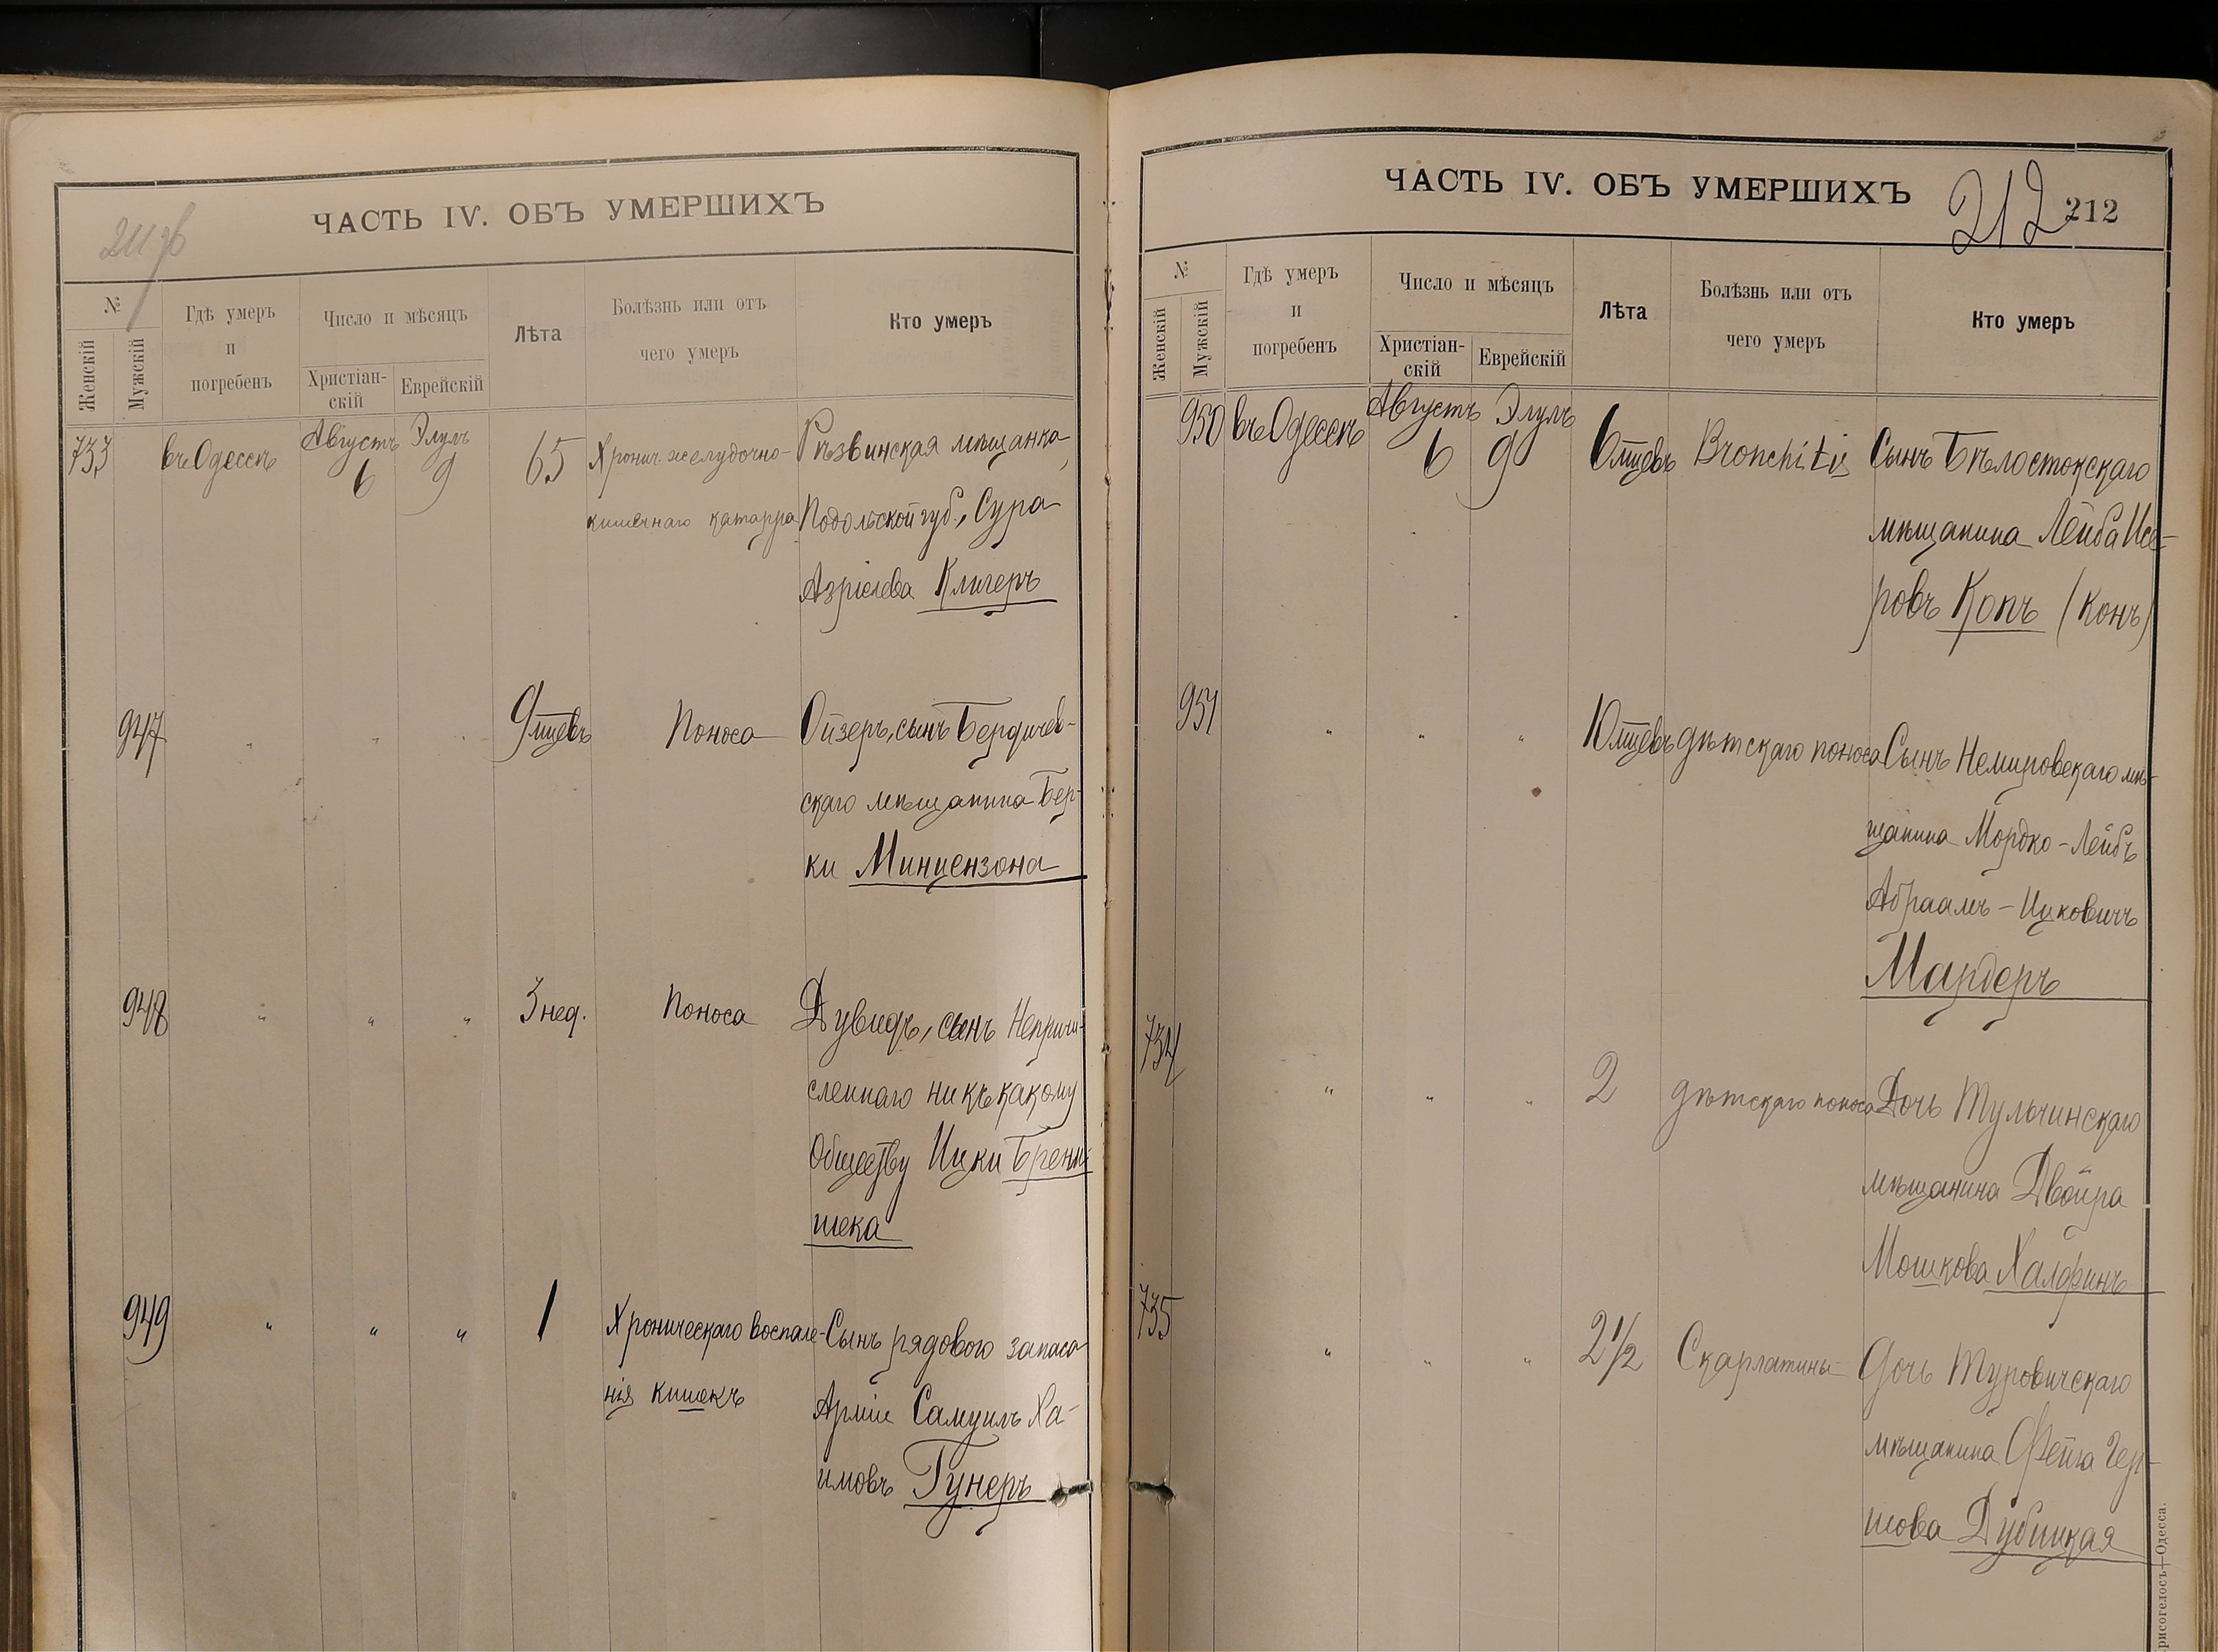 211 об
ЧАСТЬ IV. ОБЪ УМЕРШИХЪ
№
Женскій
Мужскій
Гдѣ умеръ
и
погребенъ
Число и мѣсяцъ
Христіан-
скій
Еврейскій
Лѣта
Болѣзнь или отъ
чего умеръ
Кто умеръ
733 въ Одессѣ Августъ 6 Элулъ 9 65 Хронич. желудочно- Рѣзвинская мѣщанка,
кишечнаго катарра Подольской губ., Сура
Азріелева Клигеръ
947 " " " 9 мцевъ Поноса Ойзеръ, сынъ Бердичев-
скаго мѣщанина Бер-
ки Минцензона
948 " " " 3 нед. Поноса Дувидъ, сынъ Неприч-
сленнаго ни къ какому
Обществу Ицки Бренн-
шека
949 " " " 1 Хроническаго воспале- Сынъ рядового запаса
нія кишекъ Арміи Самуилъ Ха-
имовъ Гунеръ
ЧАСТЬ IV. ОБЪ УМЕРШИХЪ
212 212
№
Женскій
Мужскій
Гдѣ умеръ
и
погребенъ
Число и мѣсяцъ
Христіан-
скій
Еврейскій
Лѣта
Болѣзнь или отъ
чего умеръ
Кто умеръ
950 въ Одессѣ Августъ 6 Элулъ 9 6 мцевъ Bronchitis Сынъ Бѣлостокскаго
мѣщанина Лейба Исе-
ровъ Копъ (Конъ)
951 " " " 10 мцевъ дѣтскаго поноса Сынъ Немировскаго мѣ-
щанина Мордко-Лейбъ
Абраамъ-Ицковичъ
Мардеръ
734 " " " 2 дѣтскаго поноса Дочь Тульчинскаго
мѣщанина Двойра
Мошкова Халфинъ
735 " " " 2 1/2 Скарлатины Дочь Туровичскаго
мѣщанина Фейга Гер-
шова Дубицкая
рисогелосъ—Одесса.